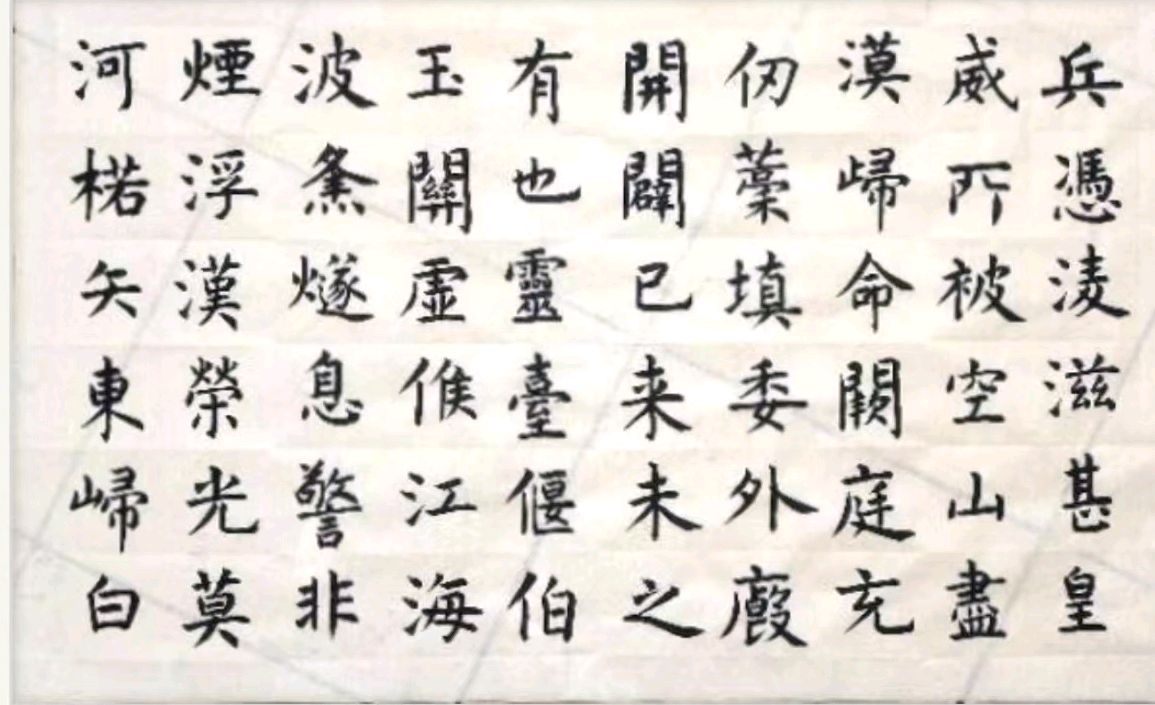 兵憑淩滋甚皇
威所被空山盡
漠歸命闕庭充
仞藁填委外廄
開闢已来未之
有也靈臺偃伯
玉關虛候江海
波烽燧息警非
煙浮漢榮光莫
河楛矢東歸白